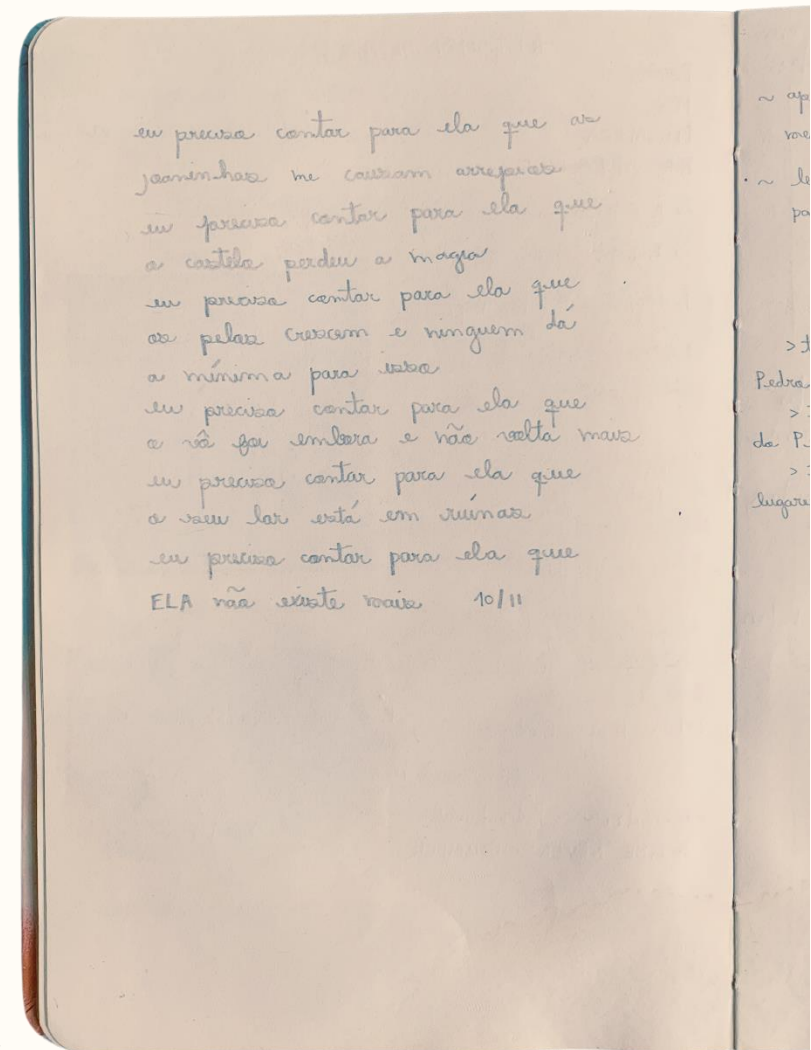 eu preciso contar para ela que as
joaninhas me causam arrepios
eu preciso contar para ela que
o castelo perdeu a magia
eu preciso contar para ela que
os pelos crescem e ninguem dá
a mínima para isso
eu preciso contar para ela que
o vô foi embora e não volta mais
eu preciso contar para ela que
o seu lar está em ruínas
eu preciso contar para ela que
ELA não existe mais 10/11
~ ap
me
~ le
po
> t
Pedra
>
do P
>
lugare